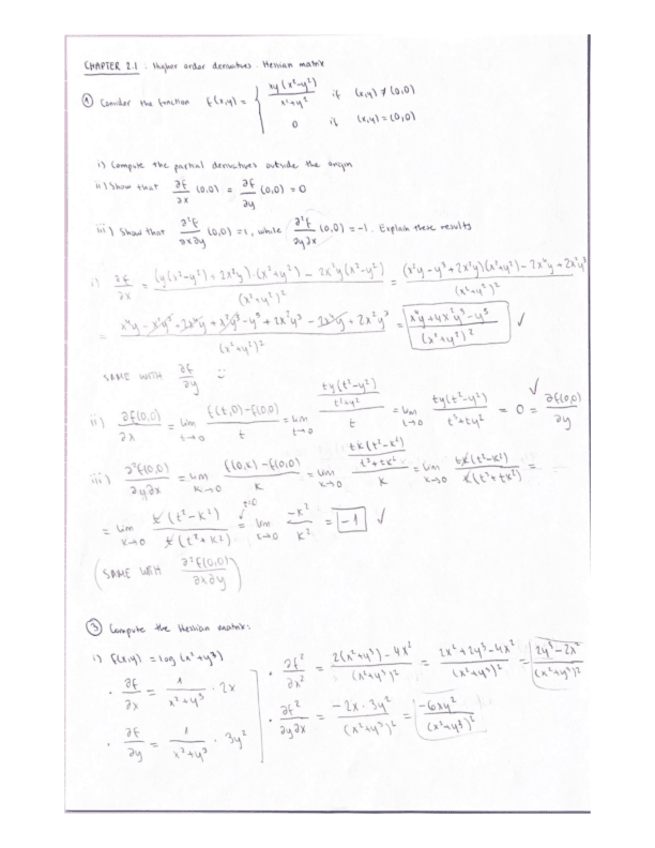 CHAPTER 2.1 : Higher order derivatives. Hessian matrix
① Consider the function f(x,y) = { xy(x²-y²) / x²+y² if (x,y) ≠ (0,0)
0 if (x,y) = (0,0)
i) Compute the partial derivatives outside the origin
ii) Show that ∂f/∂x (0,0) = ∂f/∂y (0,0) = 0
iii) Show that ∂²f/∂x∂y (0,0) = 1, while ∂²f/∂y∂x (0,0) = -1. Explain these results
i) ∂f/∂x = (y(x²-y²) + 2x²y)·(x²+y²) - 2x²y(x²-y²) / (x²+y²)² = (x²y - y³ + 2x²y)(x²+y²) - 2x⁴y + 2x²y³ / (x²+y²)²
= x⁴y - x²y³ + 2x⁴y + x²y³ - y⁵ + 2x²y³ - 2x⁴y + 2x²y³ / (x²+y²)² = x⁴y + 4x²y³ - y⁵ / (x²+y²)² ✓
SAME WITH ∂f/∂y :)
ii) ∂f(0,0)/∂x = lim t→0 f(t,0) - f(0,0) / t = lim t→0 ty(t²-y²) / t²+y² / t = lim t→0 ty(t²-y²) / t³+ty² = 0 = ∂f(0,0)/∂y ✓
iii) ∂²f(0,0)/∂y∂x = lim k→0 f(0,k) - f(0,0) / k = lim k→0 tk(t²-k²) / t³+tk² / k = lim k→0 tk(t²-k²) / k(t³+tk²) =
= lim k→0 t(t²-k²) / t(t²+k²) = t=0 lim t→0 -k² / k² = -1 ✓
(SAME WITH ∂²f(0,0)/∂x∂y)
③ Compute the Hessian matrix:
i) f(x,y) = log (x²+y³)
· ∂f/∂x = 1 / x²+y³ · 2x
· ∂f/∂y = 1 / x²+y³ · 3y²
· ∂f²/∂x² = 2(x²+y³) - 4x² / (x²+y³)² = 2x²+2y³-4x² / (x²+y³)² = 2y³-2x² / (x²+y³)²
· ∂f²/∂y∂x = -2x · 3y² / (x²+y³)² = -6xy² / (x²+y³)²